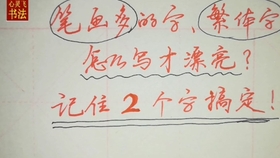 心灵飞
书法
笔画多的字、繁体字
怎么写才漂亮？
记住2个字搞定！